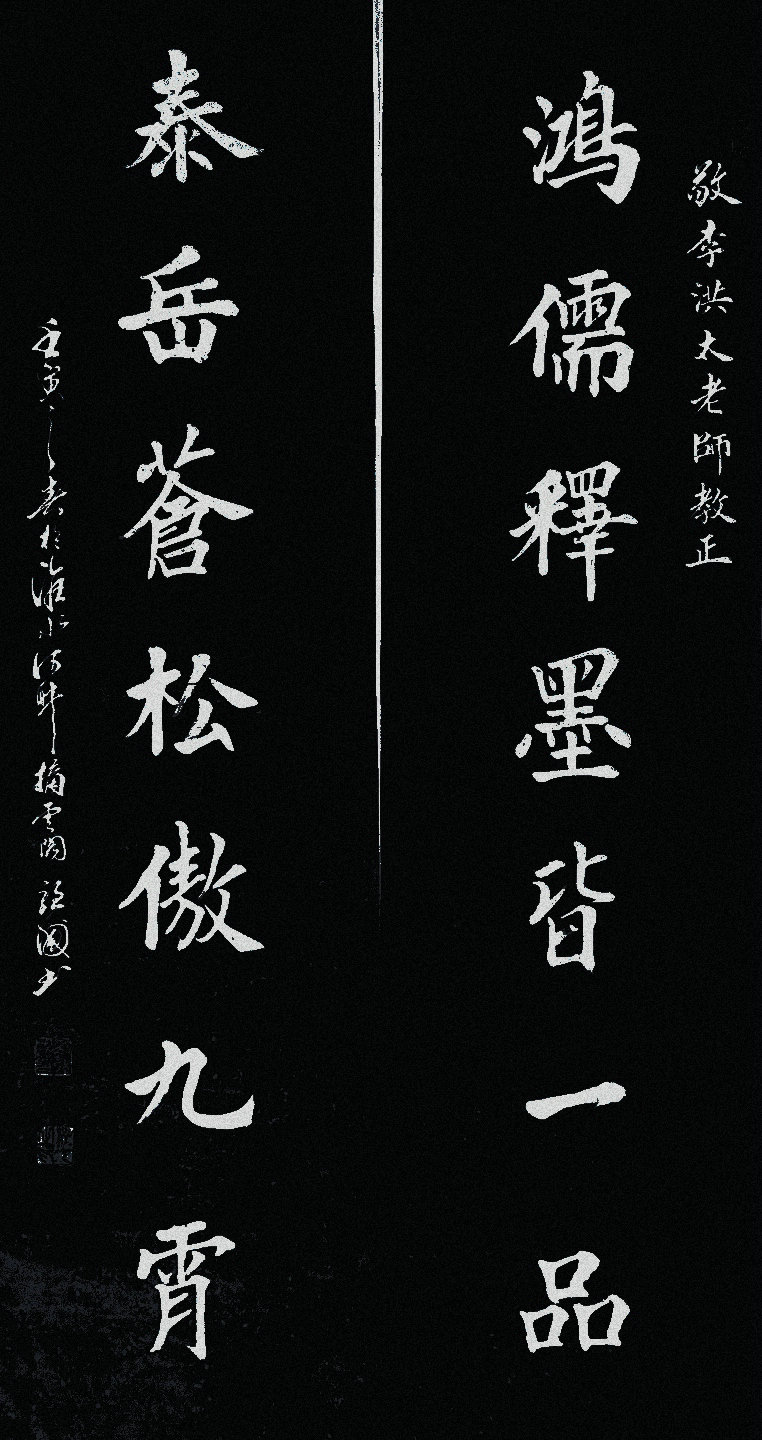 敬李洪太老師教正
鴻儒釋墨皆一品
泰岳蒼松傲九霄
壬寅之春於淮水河畔摘雲閣 國書